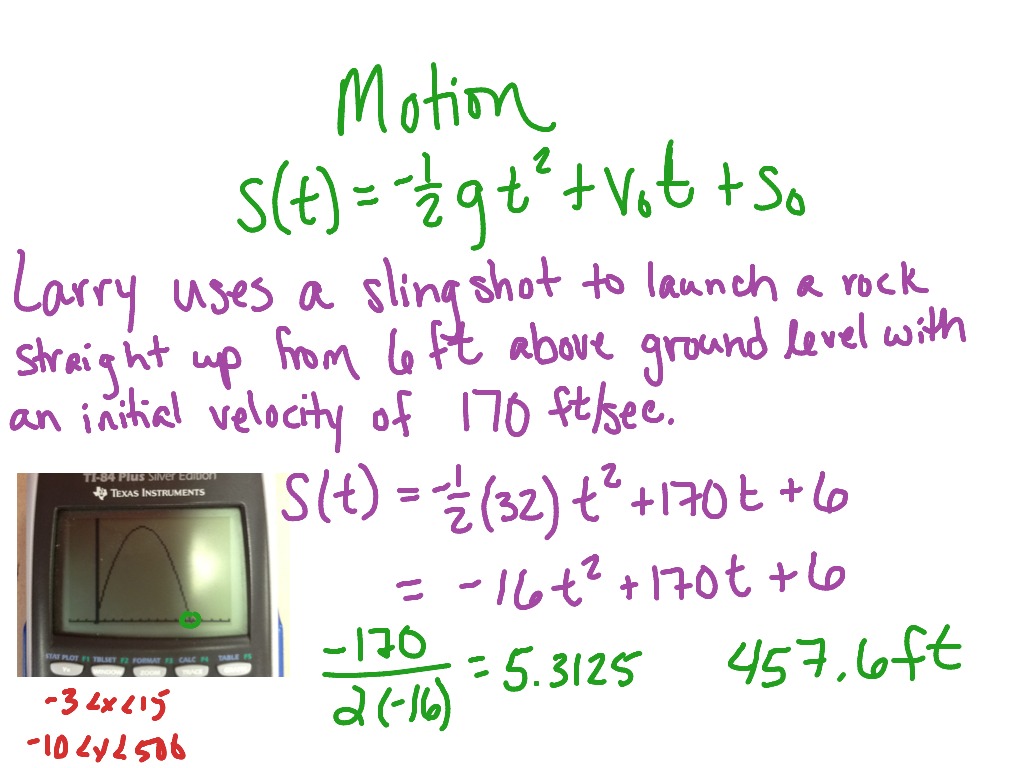 Motion
S(t) = -1/2 g t² + V₀t + S₀
Larry uses a slingshot to launch a rock
straight up from 6 ft above ground level with
an initial velocity of 170 ft/sec.
TI-84 Plus Silver Edition
TEXAS INSTRUMENTS
S(t) = -1/2 (32) t² + 170t + 6
= -16t² + 170t + 6
STAT PLOT F1 TBLSET F2 FORMAT F3 CALC F4 TABLE F5
WINDOW ZOOM TRACE
-170/2(-16) = 5.3125 457.6ft
-3<x<15
-10<y<500